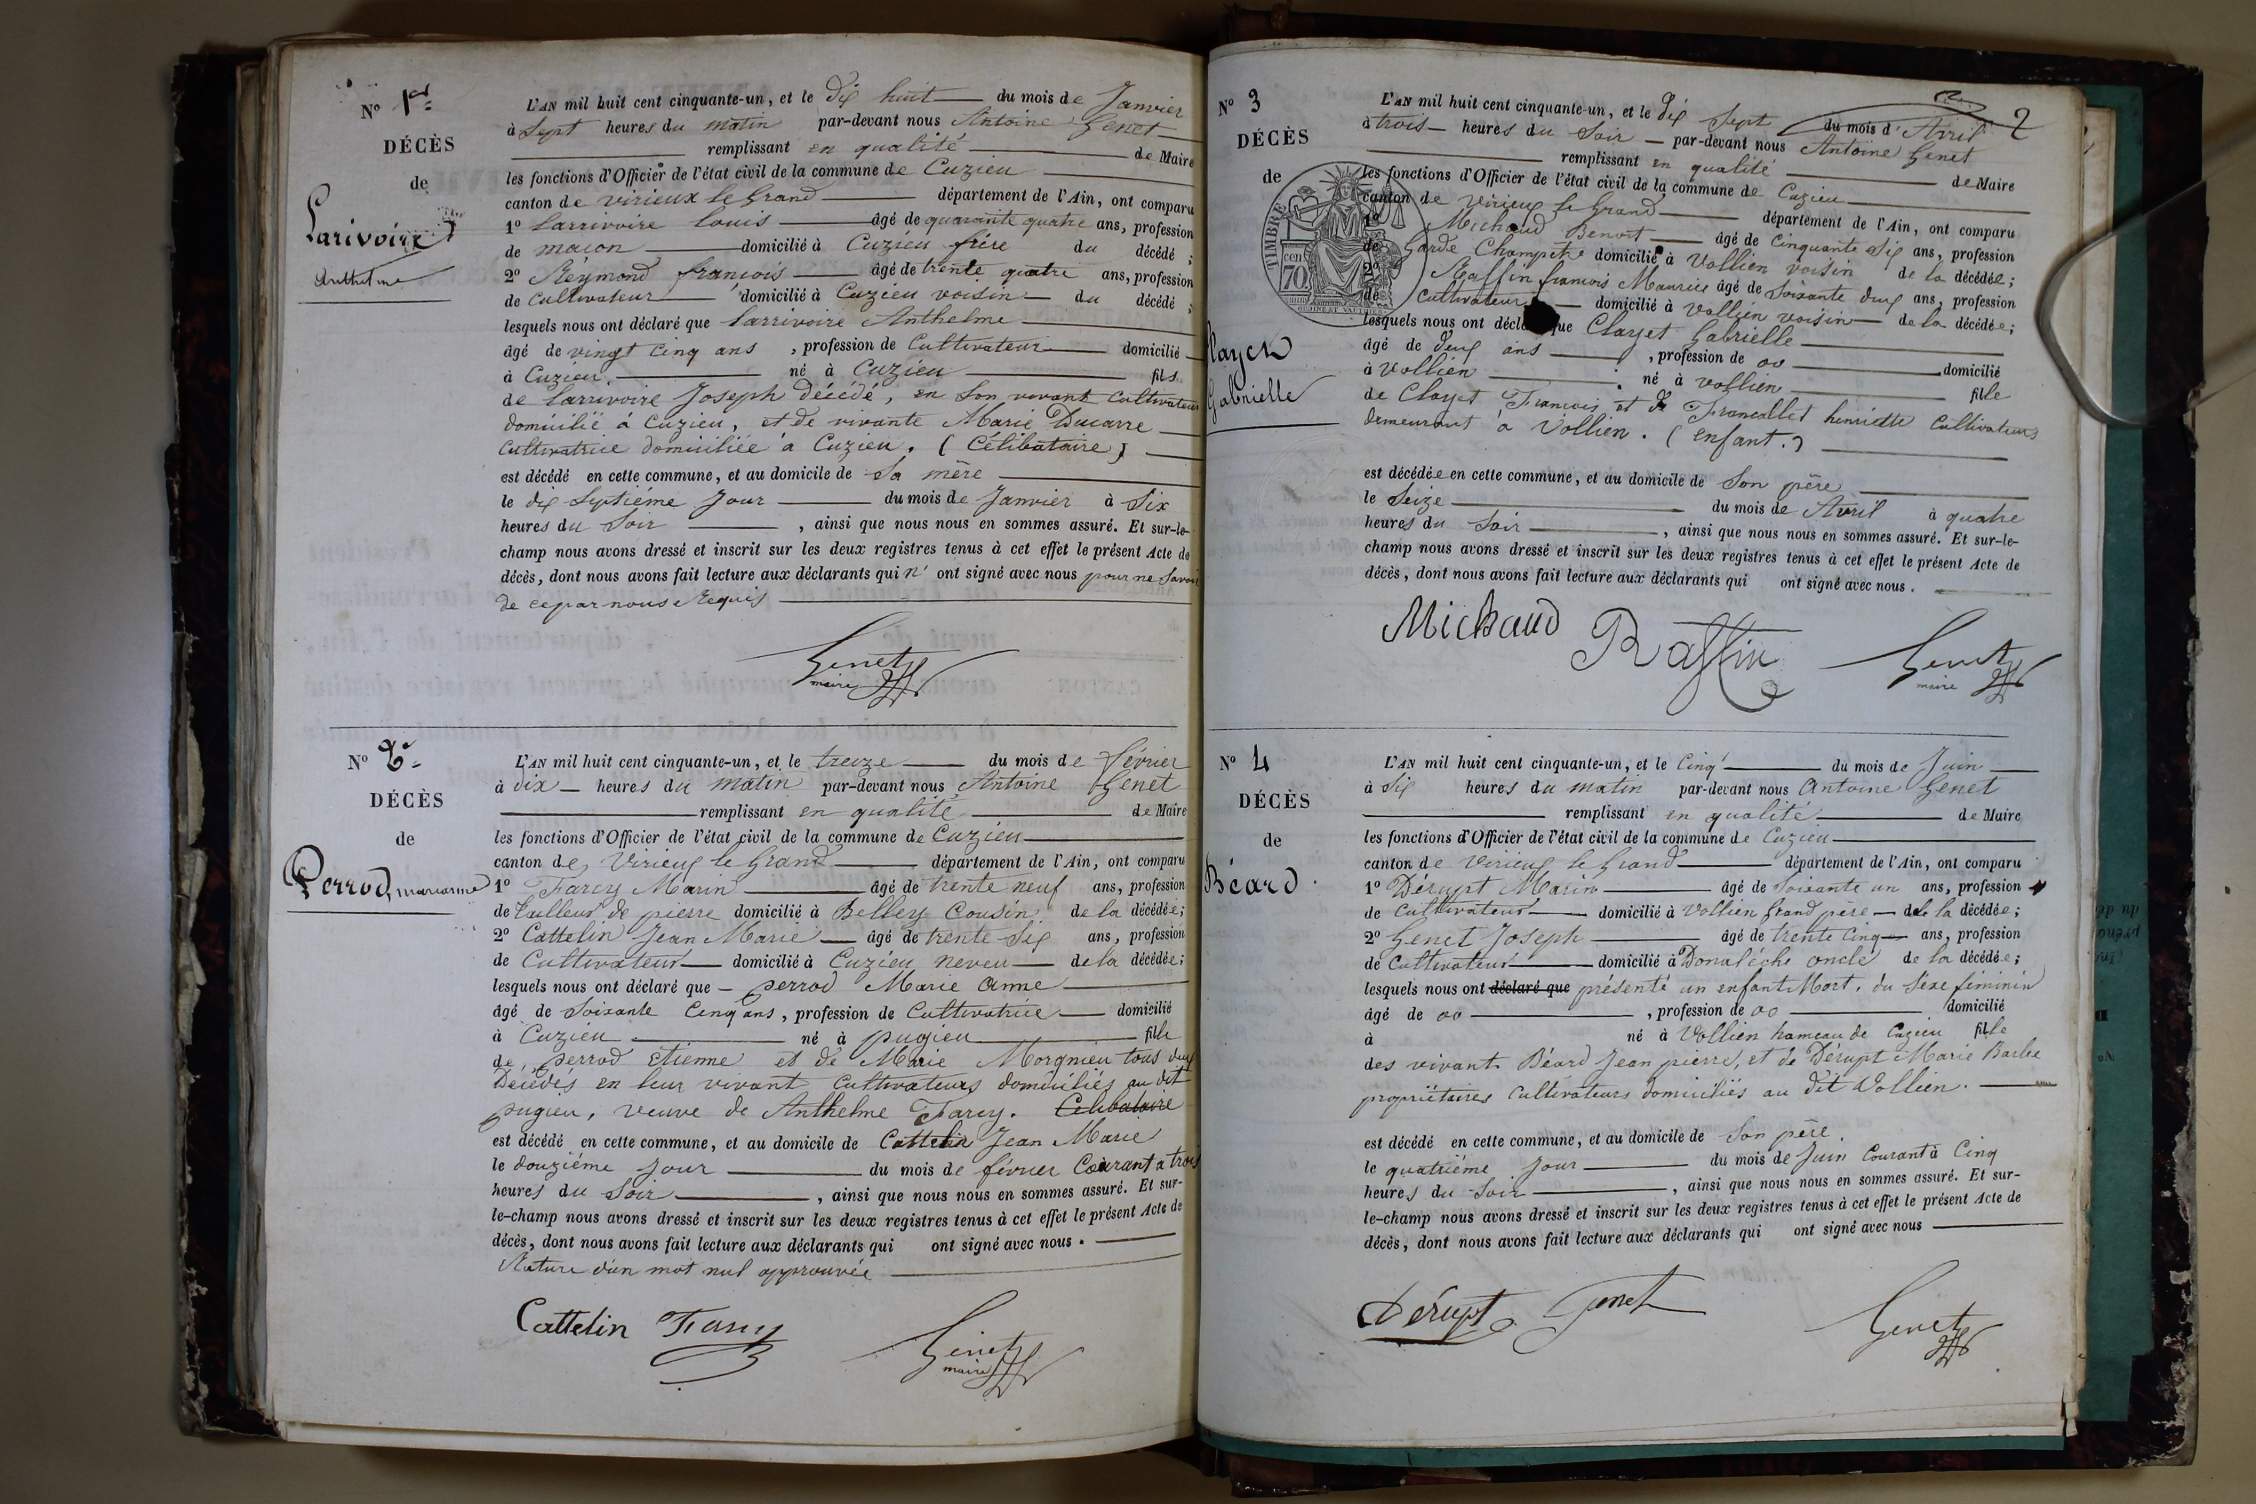 N° 1er
DÉCÈS
de
Larivoire
Anthelme
L'AN mil huit cent cinquante-un, et le dix huit du mois de Janvier
à Sept heures du matin par-devant nous Antoine Genet
remplissant en qualité de Maire
les fonctions d'Officier de l'état civil de la commune de Cuzieu
canton de virieux le Grand département de l'Ain, ont comparu
1° Larrivoire Louis âgé de quarante quatre ans, profession
de maçon domicilié à Cuzieu frère du décédé ;
2° Réymond françois âgé de trente quatre ans, profession
de Cultivateur domicilié à Cuzieu voisin du décédé ;
lesquels nous ont déclaré que Larrivoire Anthelme
âgé de vingt cinq ans , profession de Cultivateur domicilié
à Cuzieu. né à Cuzieu fils
de Larrivoire Joseph décédé, en Son vivant Cultivateur
domicilié à Cuzieu, et de vivante Marie Ducarre
Cultivatrice domiciliée à Cuzieu. (Célibataire)
est décédé en cette commune, et au domicile de Sa mère
le dix Septiéme Jour du mois de Janvier à Six
heures du Soir , ainsi que nous nous en sommes assuré. Et sur-le-
champ nous avons dressé et inscrit sur les deux registres tenus à cet effet le présent Acte de
décès, dont nous avons fait lecture aux déclarants qui n' ont signé avec nous pour ne Savoir
de ce par nous Requis
Genet
maire
N° 2e
DÉCÈS
de
Perrod, marianne
L'AN mil huit cent cinquante-un, et le treize du mois de février
à dix heures du matin par-devant nous Antoine Genet
remplissant en qualité de Maire
les fonctions d'Officier de l'état civil de la commune de Cuzieu
canton de Virieux le Grand département de l'Ain, ont comparu
1° Farcy Marin âgé de trente neuf ans, profession
de tailleur de pierre domicilié à Belley Cousin de la décédée;
2° Cattelin Jean Marie âgé de trente Six ans, profession
de Cultivateur domicilié à Cuzieu neveu de la décédée;
lesquels nous ont déclaré que perrod Marie Anne
âgé de Soixante Cinq ans, profession de Cultivatrice domicilié
à Cuzieu né à pugieu fille
de perrod Etienne et de Marie Morgnieu tous deux
Décédés en leur vivant Cultivateurs domiciliés au dit
pugieu, veuve de Anthelme Farcy. Celibataire
est décédé en cette commune, et au domicile de Cattelin Jean Marie
le douziéme Jour du mois de février Courant à trois
heures du Soir , ainsi que nous nous en sommes assuré. Et sur-
le-champ nous avons dressé et inscrit sur les deux registres tenus à cet effet le présent Acte de
décès, dont nous avons fait lecture aux déclarants qui ont signé avec nous.
Rature d'un mot nul approuvée
Cattelin Farcy Genet
maire
2
N° 3
DÉCÈS
de
TIMBRE
cen
70.
Clayet
Gabrielle
L'AN mil huit cent cinquante-un, et le dix Sept du mois d'Avril
à trois heures du Soir par-devant nous Antoine Genet
remplissant en qualité de Maire
les fonctions d'Officier de l'état civil de la commune de Cuzieu
canton de Virieux le Grand département de l'Ain, ont comparu
1° Michaud Benoit âgé de Cinquante Six ans, profession
de Garde Champêtre domicilié à Vollien voisin de la décédée;
2° Raffin françois Maurice âgé de Soixante deux ans, profession
de Cultivateur domicilié à Vollien voisin de la décédée;
lesquels nous ont déclaré que Clayet Gabrielle
âgé de deux ans , profession de oo domicilié
à Vollien né à Vollien fille
de Clayet François et de Francallet henriette Cultivateurs
demeurant à Vollien. (enfant.)
est décédée en cette commune, et au domicile de Son père
le Seize du mois de Avril à quatre
heures du Soir , ainsi que nous nous en sommes assuré. Et sur-le-
champ nous avons dressé et inscrit sur les deux registres tenus à cet effet le présent Acte de
décès, dont nous avons fait lecture aux déclarants qui ont signé avec nous.
Michaud Raffin Genet
maire
N° 4
DÉCÈS
de
Béard.
L'AN mil huit cent cinquante-un, et le Cinq du mois de Juin
à Six heures du matin par-devant nous Antoine Genet
remplissant en qualité de Maire
les fonctions d'Officier de l'état civil de la commune de Cuzieu
canton de Virieux le Grand département de l'Ain, ont comparu
1° Dérupt Marin âgé de Soixante un ans, profession
de Cultivateur domicilié à Vollien Grand père de la décédée;
2° Genet Joseph âgé de trente Cinq ans, profession
de Cultivateur domicilié à Donaléche oncle de la décédée;
lesquels nous ont déclaré que présenté un enfant Mort, du Séxe féminin
âgé de oo , profession de oo domicilié
à né à Vollien hameau de Cuzieu fille
des vivant Béard Jean pierre, et de Dérupt Marie Barbe
propriétaires Cultivateurs domiciliés au dit Vollien.
est décédé en cette commune, et au domicile de Son père.
le quatriéme Jour du mois de Juin Courant à Cinq
heures du Soir , ainsi que nous nous en sommes assuré. Et sur-
le-champ nous avons dressé et inscrit sur les deux registres tenus à cet effet le présent Acte de
décès, dont nous avons fait lecture aux déclarants qui ont signé avec nous
Dérupt Genet Genet